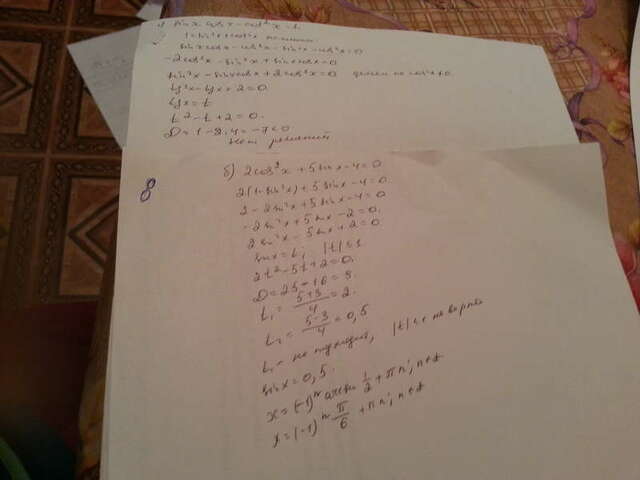 а) sin x cos x - cos²x = 1
1 = sin²x + cos²x
sin x cos x - cos²x - sin²x - cos²x = 0
-2cos²x - sin²x + sin x cos x = 0
sin²x - sin x cos x + 2cos²x = 0 делим на cos²x ≠ 0
tg²x - tg x + 2 = 0
tg x = t
t² - t + 2 = 0.
D = 1 - 2·4 = -7 < 0
Нет решений
8
б) 2cos²x + 5 sin x - 4 = 0
2(1 - sin²x) + 5 sin x - 4 = 0
2 - 2 sin²x + 5 sin x - 4 = 0
-2 sin²x + 5 sin x - 2 = 0.
2 sin²x - 5 sin x + 2 = 0
sin x = t; |t| ≤ 1
2t² - 5t + 2 = 0.
D = 25 - 16 = 9.
t₁ = (5+3)/4 = 2.
t₂ = (5-3)/4 = 0,5
t₁ - не подходит, |t| ≤ 1 не верно
sin x = 0,5.
x = (-1)ⁿ arcsin 1/2 + πn; n∈Z
x = (-1)ⁿ π/6 + πn; n∈Z